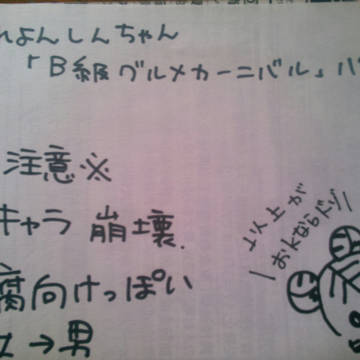 れよんしんちゃん
「B級グルメカーニバル」パ
注意※
キャラ 崩壊.
腐向けっぽい
女→男
\以上が
おkならドゾ/